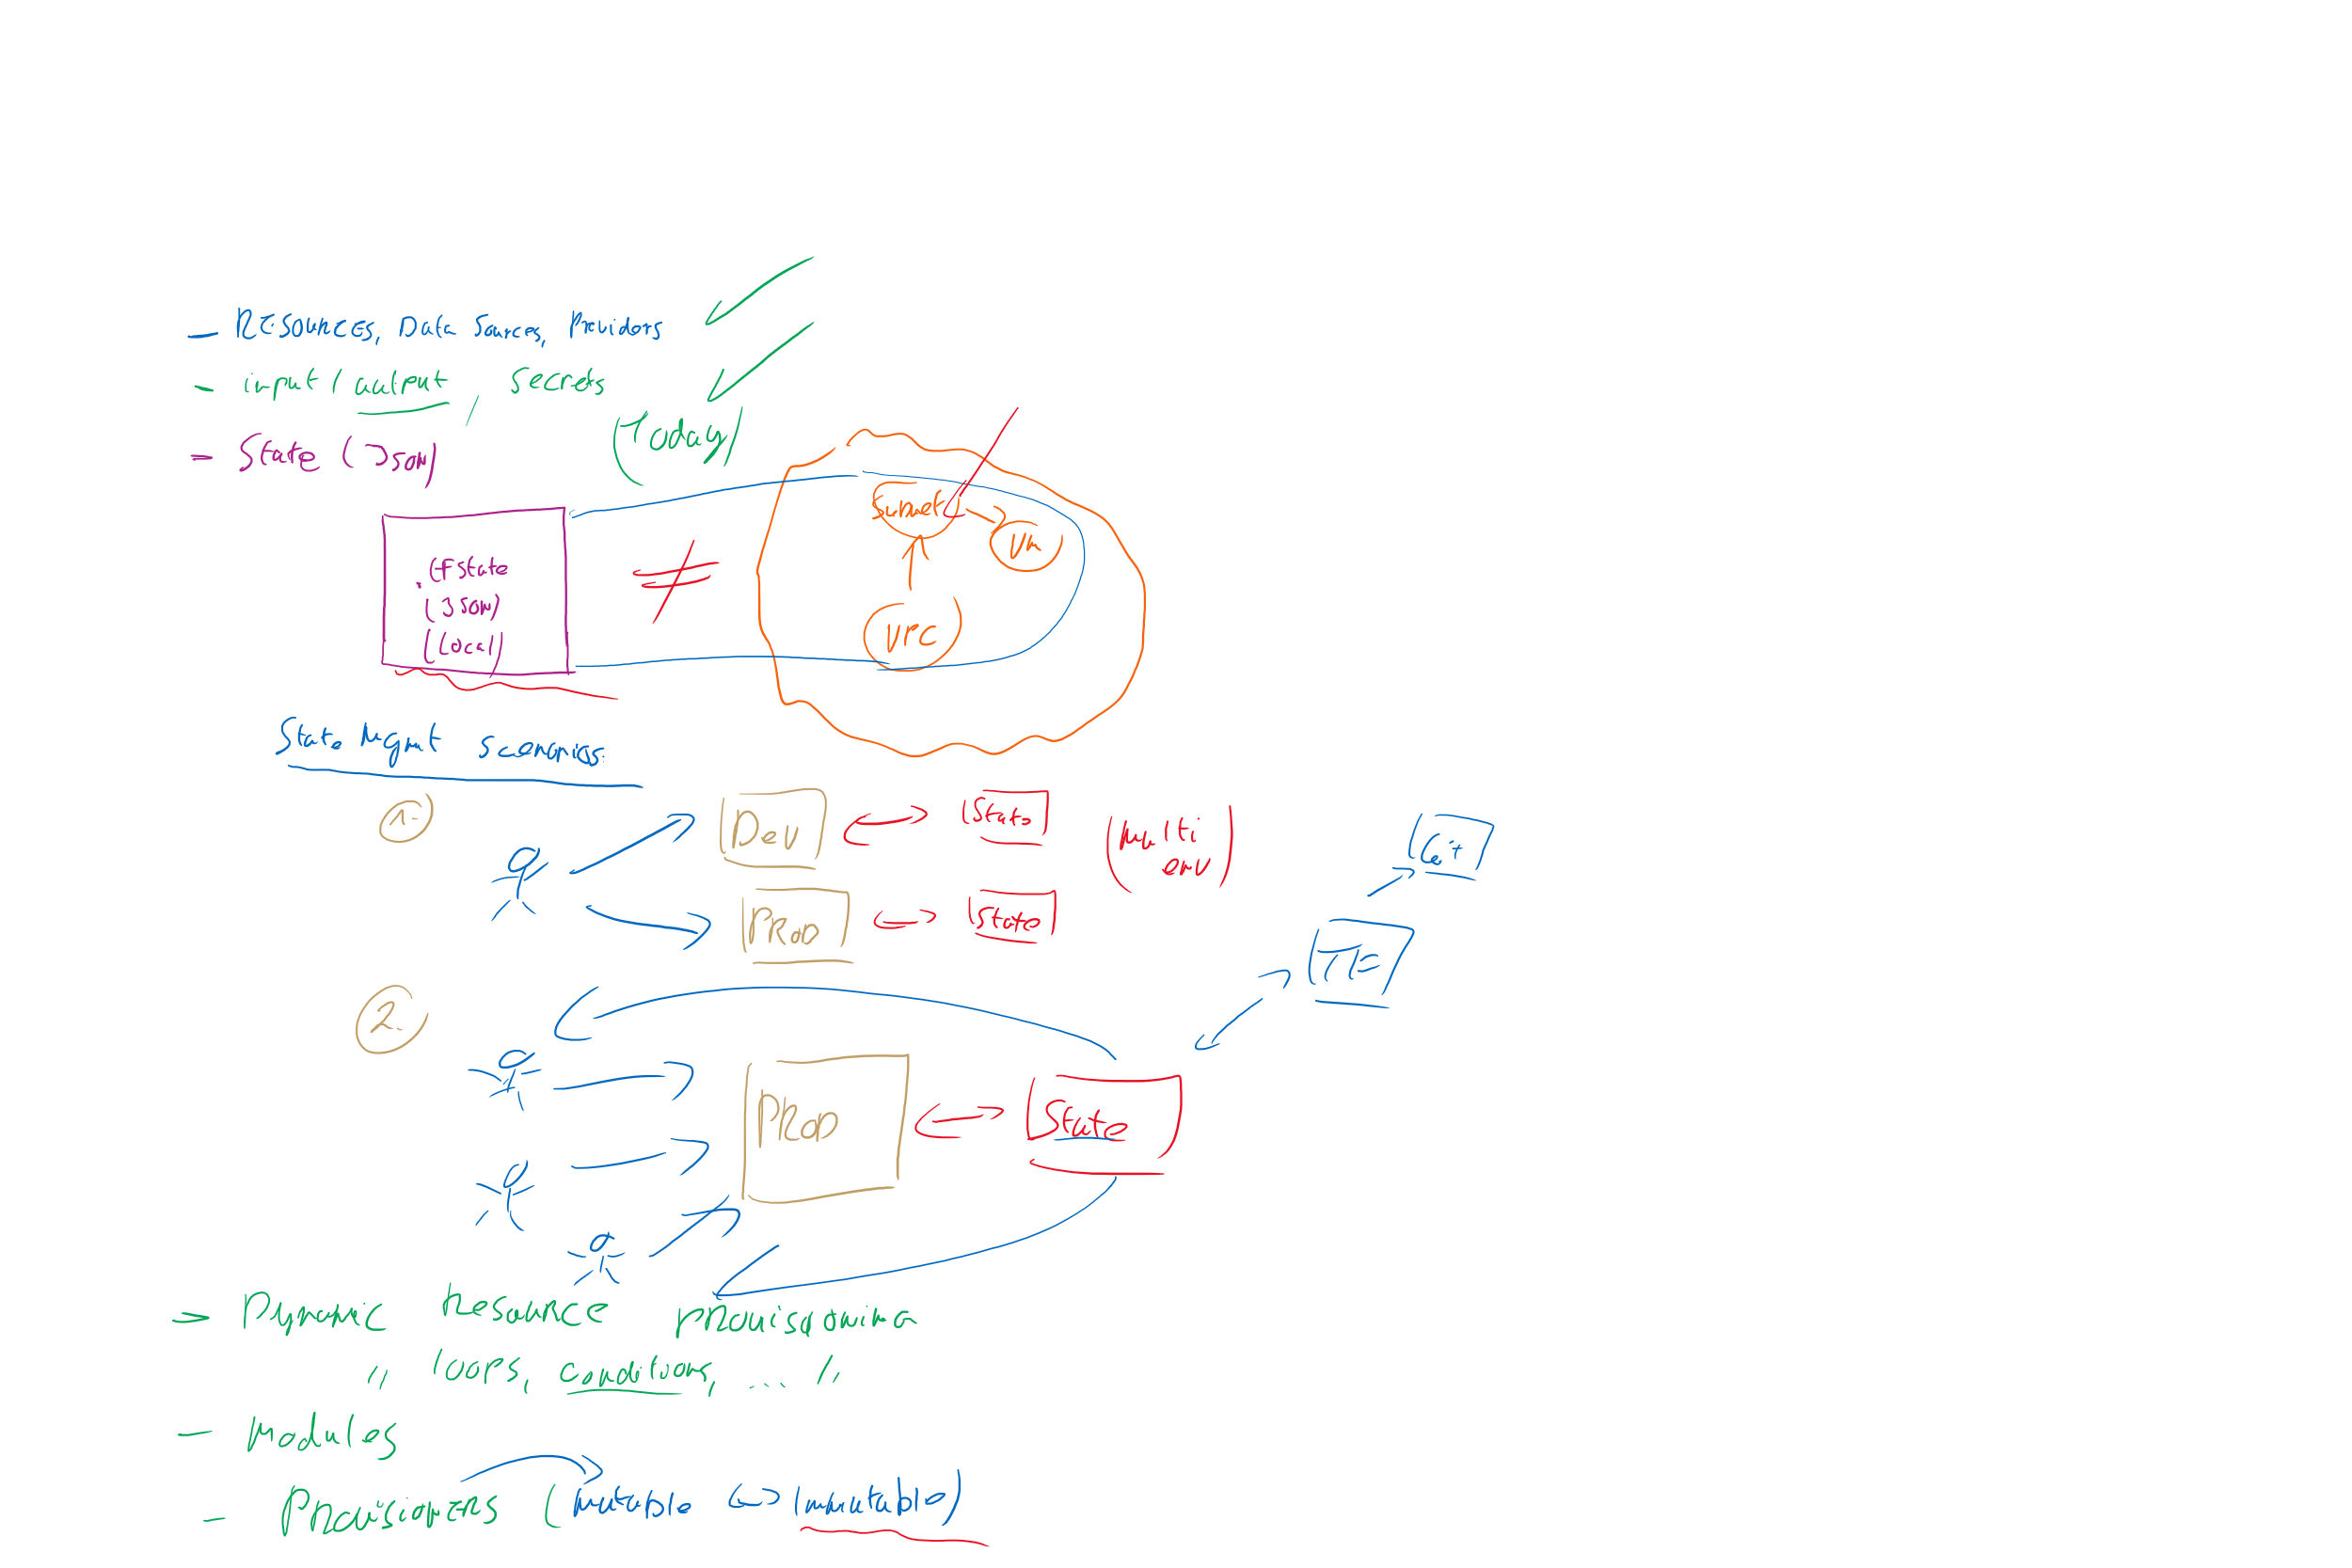 - Resources, Data Sources, Providers
- input / output, secrets
(Today)
- State (JSON)
.tfstate
(JSON)
(Local)
≠
Subnet
VM
VPC
State Mgmt scenarios:
1.
Dev
State
(Multi
env)
PROD
State
Git
TF
2.
PROD
State
- Dynamic Resource provisioning
" loops, conditions, ... "
- Modules
- Provisioners (mutable <-> immutable)